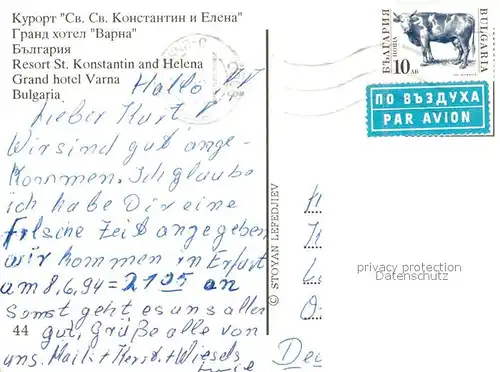 Курорт "Св. Св. Константин и Елена"
Гранд хотел "Варна"
България
Resort St. Konstantin and Helena
Grand hotel Varna
Bulgaria
БЪЛГАРИЯ
ПОЩА
10 ЛВ
BULGARIA
ПО ВЪЗДУХА
PAR AVION
Hallo
Lieber Kurt
Wir sind gut ange-
kommen. Ich glaube
ich habe Dir eine
falsche Zeit angegeben
wir kommen in Erfurt
am 8.6.94 = 2105 an
Sonst geht es uns allen
gut, Grüße alle von
uns. + Horst. +
44
© STOYAN LEFEDJIEV
privacy protection
Datenschutz